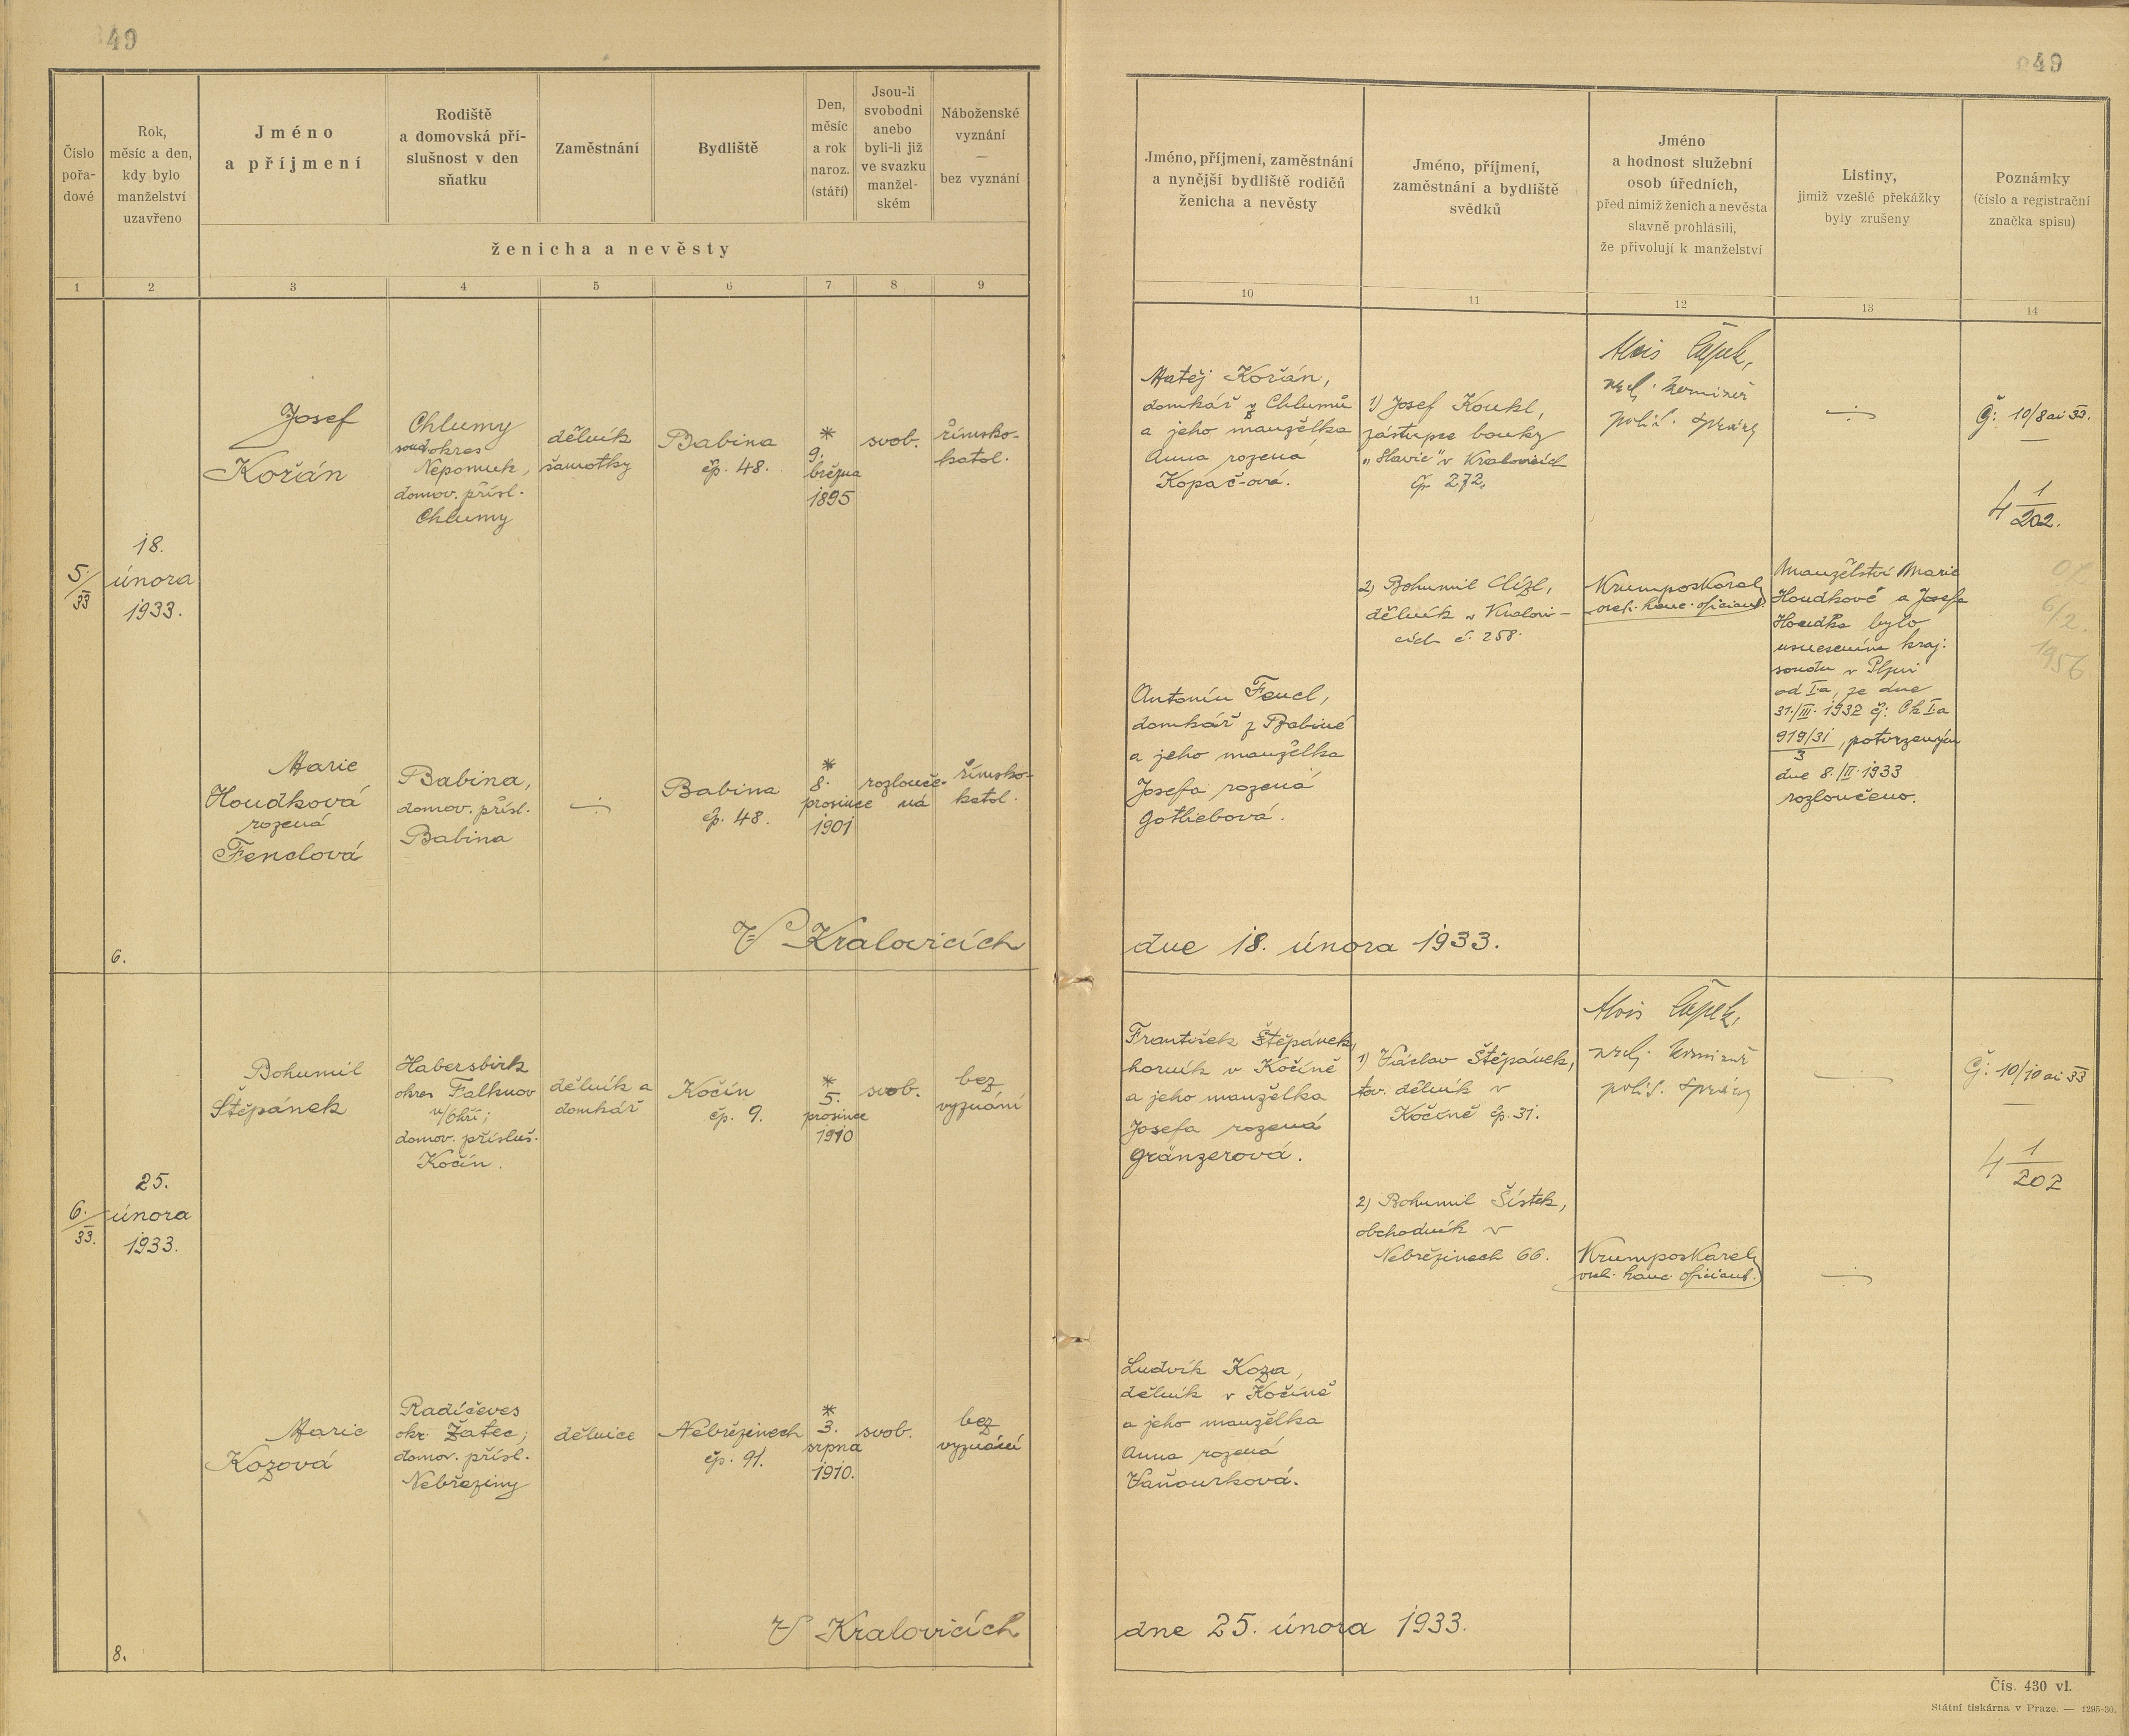 49
49
Číslo
pořa-
dové
Rok,
měsíc a den,
kdy bylo
manželství
uzavřeno
Jméno
a příjmení
Rodiště
a domovská pří-
slušnost v den
sňatku
Zaměstnání
Bydliště
Den,
měsíc
a rok
naroz.
(stáří)
Jsou-li
svobodni
anebo
byli-li již
ve svazku
manžel-
ském
Náboženské
vyznání
—
bez vyznání
ženicha a nevěsty
Jméno, příjmení, zaměstnání
a nynější bydliště rodičů
ženicha a nevěsty
Jméno, příjmení,
zaměstnání a bydliště
svědků
Jméno
a hodnost služební
osob úředních,
před nimiž ženich a nevěsta
slavně prohlásili,
že přivolují k manželství
Listiny,
jimiž vzešlé překážky
byly zrušeny
Poznámky
(číslo a registrační
značka spisu)
1 2 3 4 5 6 7 8 9
10 11 12 13 14
5./33
18.
února
1933.
Josef
Kořán
Chlumy
soud. okres
Nepomuk,
domov. přísl.
Chlumy
dělník
šamotky
Babina
čp. 48.
*
9.
března
1895
svob.
římsko-
katol.
Matěj Kořán,
domkář z Chlumů
a jeho manželka
Anna rozená
Kopač-ová.
1) Josef Koukl,
zástupce banky
"Slavie" v Kralovicích
čp. 272.
Alois Čapek,
polit. správy
Č: 10/8 ai 33.
4 1/202.
2) Bohumil Clízl,
dělník v Kralovi-
cích č. 258.
Krumpos Karel
ofíciant.
Manželství Marie
Houdkové a Josefa
Houdka bylo
usnesením kraj.
soudu v Plzni
od I.a, ze dne
31./III. 1932 čj: Ck Ia
919/31
3
, potvrzeným
dne 8./II. 1933
rozloučeno.
6/2.
1956
Marie
Houdková
rozená
Fenclová
Babina,
domov. přísl.
Babina
Babina
čp. 48.
*
8.
prosince
1901
rozlouče-
ná
římsko-
katol.
Antonín Fencl,
domkář z Babiné
a jeho manželka
Josefa rozená
Gotliebová.
6.
V Kralovicích
dne 18. února 1933.
6./33.
25.
února
1933.
Bohumil
Štěpánek
Habersbirk
okres Falknov
n/Ohří;
domov. přísluš.
Kočín.
dělník a
domkář
Kočín
čp. 9.
*
5.
prosince
1910
svob.
bez
vyznání
František Štěpánek,
horník v Kočíně
a jeho manželka
Josefa rozená
Gränzerová.
1) Václav Štěpánek,
tov. dělník v
Kočíně čp. 31.
Alois Čapek,
polit. správy
Č: 10/10 ai 33
4 1/202
2) Bohumil Šístek,
obchodník v
Nebřezinech 66.
Krumpos Karel
ofíciant.
Marie
Kozová
Radíčeves
okr. Žatec;
domov. přísl.
Nebřeziny
dělnice
Nebřezinech
čp. 91.
*
3.
srpna
1910.
svob.
bez
vyznání
Ludvík Koza,
dělník v Kočíně
a jeho manželka
Anna rozená
Vaňourková.
8.
V Kralovicích
dne 25. února 1933.
Čís. 430 vl.
Státní tiskárna v Praze. — 1295-30.